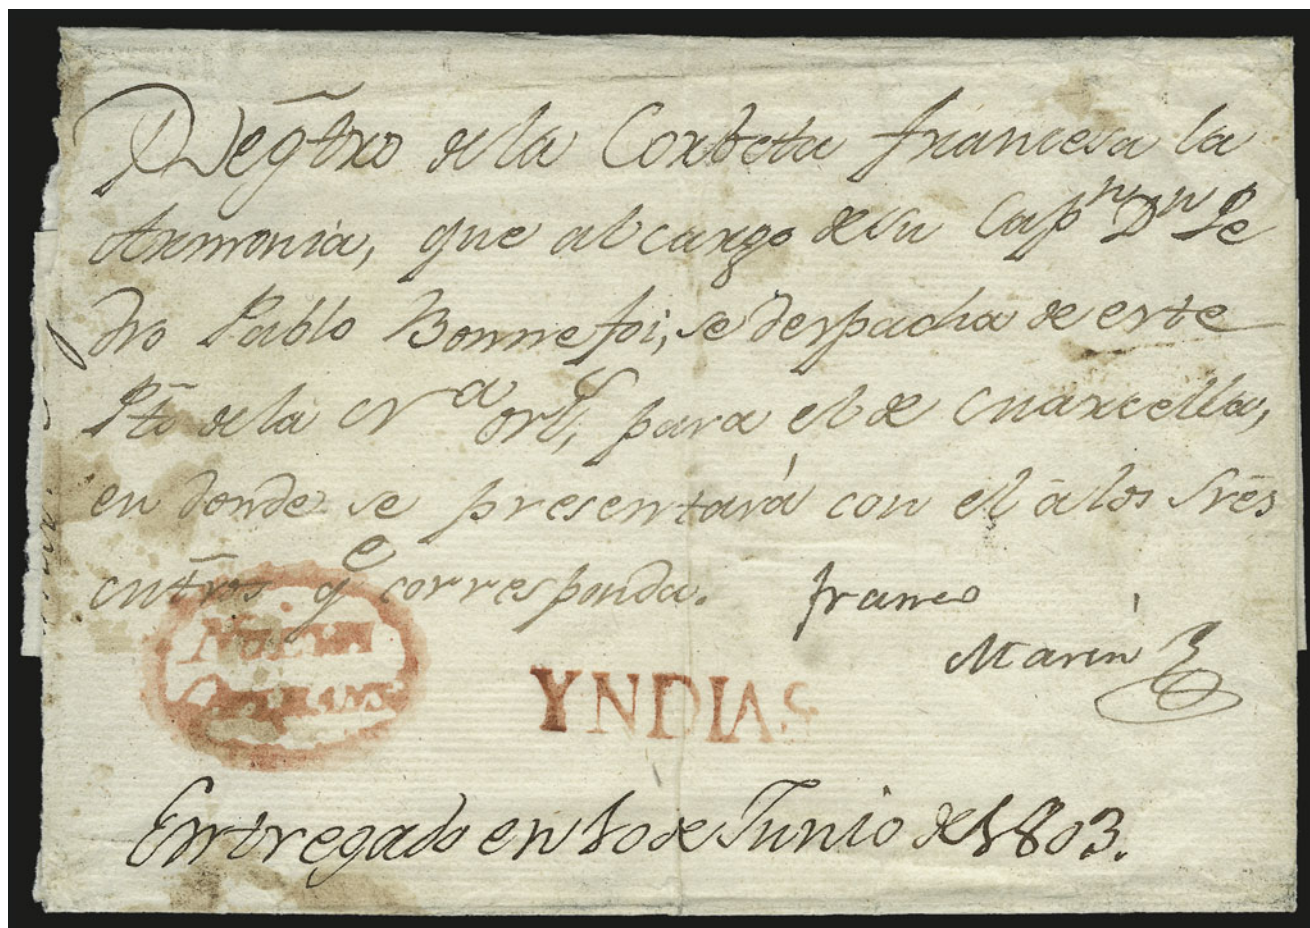 Registro de la Corbeta francesa la
Armonia, que al cargo de su Capn Dn Pe
dro Pablo Bonnefoi, se despacha de este
Pto de la Na Orl, para el de Marcella,
en donde se presentará con el à los Sres
Mtros qe corresponda. franco
Marin
Nueva
Orleans
YNDIAS
Entregado en 10 de Junio de 1803.